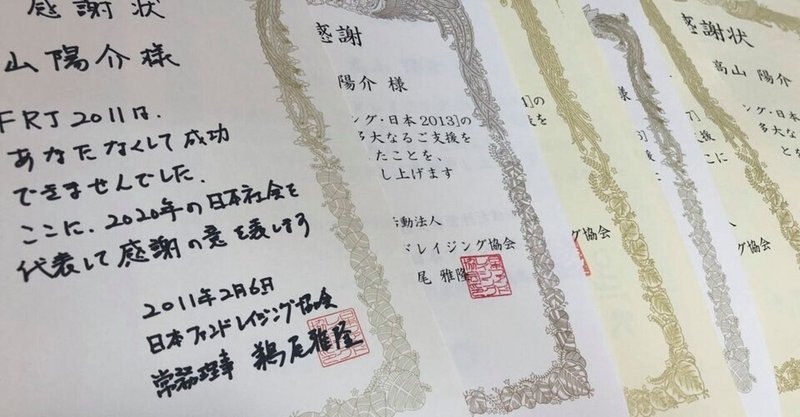 感謝状
山陽介様
FRJ2011は、
あなたなくして成功
できませんでした。
ここに、2020年の日本社会を
代表して感謝の意を表します
2011年2月6日
日本ファンドレイジング協会
常務理事 鵜尾雅隆
感謝
陽介 様
ング・日本2013]の
多大なるご支援を
たことを、
し上げます
動法人
ドレイジング協会
尾 雅隆
]の
援を
様
グ協会
感謝状
高山 陽介